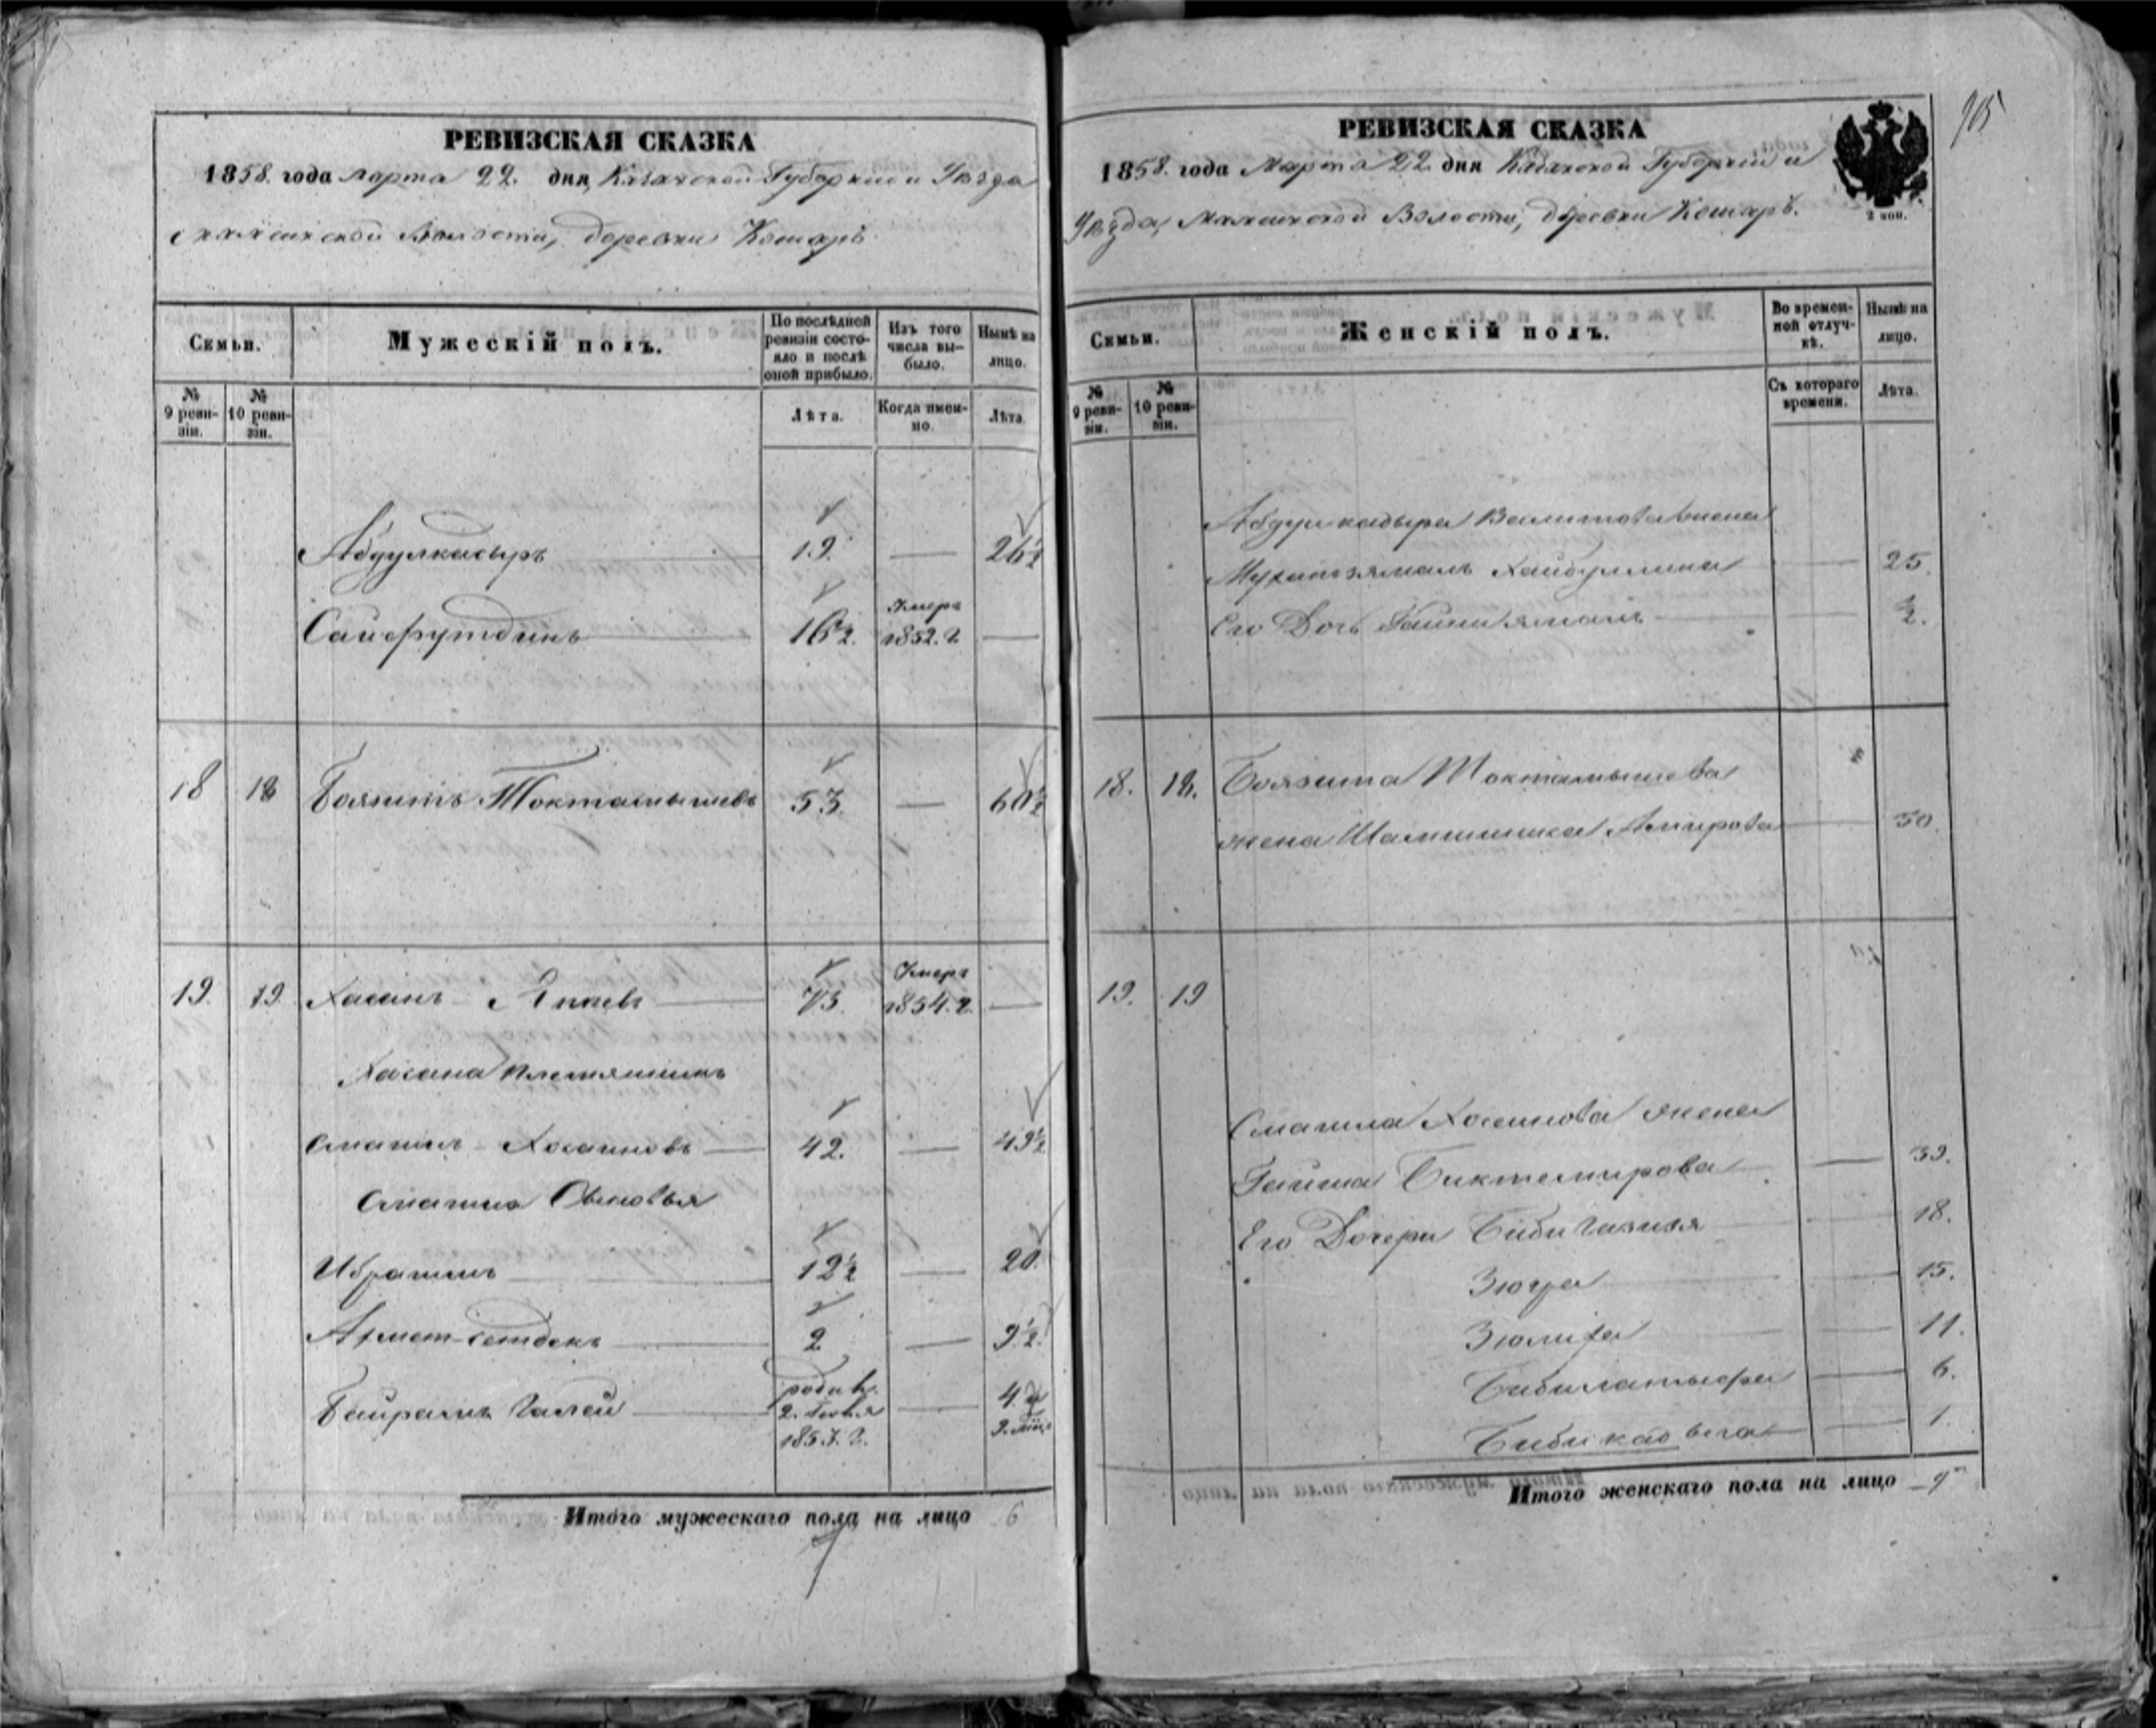 РЕВИЗСКАЯ СКАЗКА
1858. года марта 22. дня, Казанской Губернии и Уезда
волости, деревни Кошаръ
Семьи.
Мужескій полъ.
По послѣдней ревизіи состояло и послѣ оной прибыло.
Изъ того числа выбыло.
Нынѣ на лицо.
№ 9 ревизіи.
№ 10 ревизіи.
Лѣта.
Когда именно.
Лѣта.
Абдулкадыръ 19. — 26½
Сайфутдинъ 16½. Умеръ 1852. г. —
18 18 Боязитъ Токтамышевъ 53. — 60½
19. 19 Хасанъ 73. Умеръ 1854. г. —
Хасана племянникъ
Смагилъ Хосаиновъ 42. — 49½
Смагила Сыновья
Ибрагимъ 12½ — 20.
2 — 9½.
Байрамъ Галей родив. 2. 1853. г. — 4 г 9. мѣс.
Итого мужескаго пола на лицо 6
РЕВИЗСКАЯ СКАЗКА
1858. года Марта 22 дня Казанской Губерніи и
Уѣзда, Волости, деревни Кошаръ.
2 коп.
Семьи.
Женскій полъ.
Во временной отлучкѣ.
Нынѣ на лицо.
№ 9 ревизіи.
№ 10 ревизіи.
Съ котораго времени.
Лѣта.
Абдулкадыра Валитова жена
Хайбуллина — 25.
Его Дочь — ½.
18. 18. Боязита Токтамышева
жена Амирова — 50.
19. 19
Смагила Хосеинова жена
Гайша Биктемирова — 39.
Его Дочери Биби Газизя — 18.
Зюгра — 15.
Зюлиха — 11.
Бибилатыфа — 6.
Биби — 1.
Итого женскаго пола на лицо 9